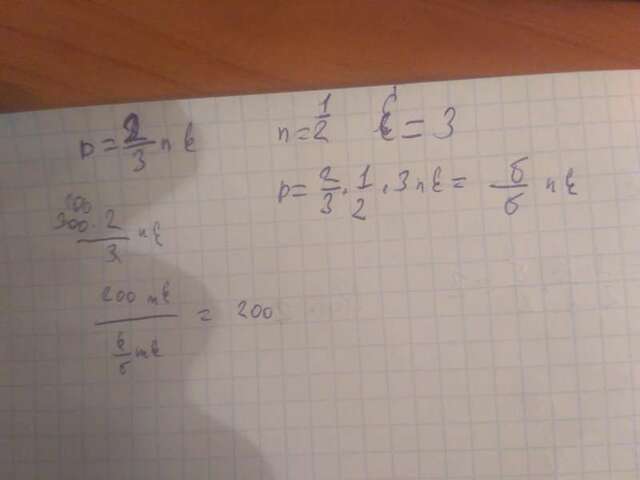 p = 2/3 n E
n = 1/2 E = 3
p = 2/3 · 1/2 · 3 n E = 6/6 n E
100
300 · 2/3 n E
200 m E / 6/6 m E = 200